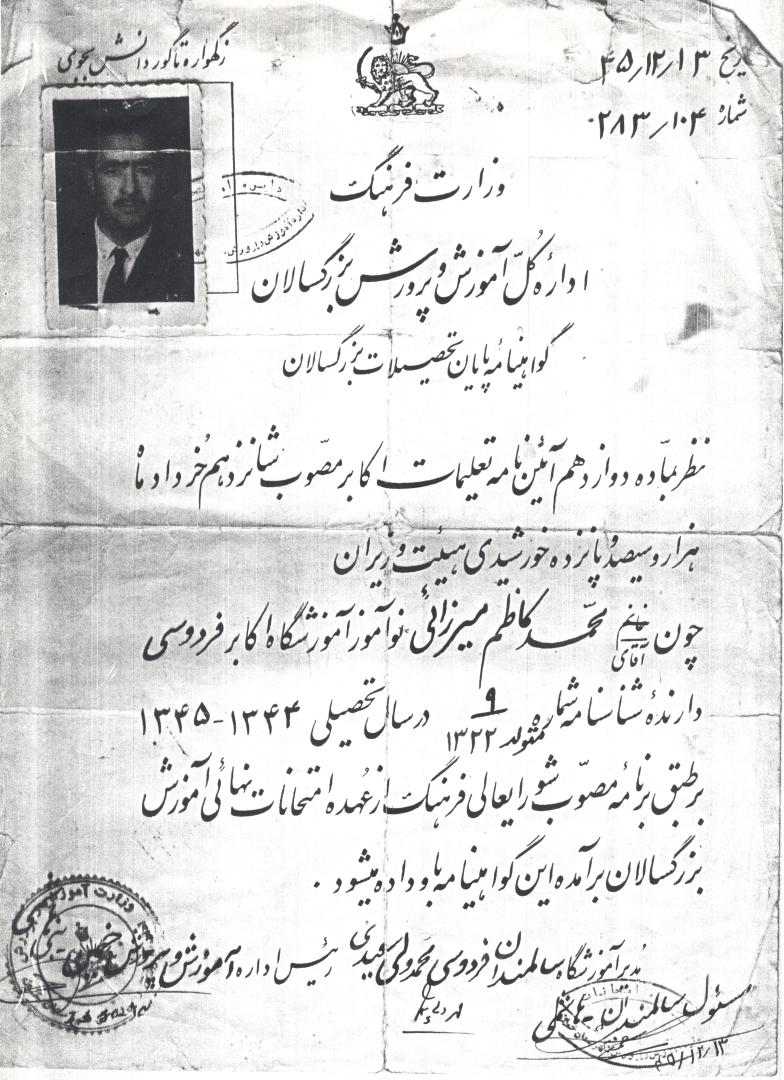 ز گهواره تا گور دانش بجوی
تاریخ ۴۵/۱۲/۱۳
شماره ۲۸۳/۱۰۴۰
وزارت فرهنگ
ادارهٔ کلّ آموزش و پرورش بزرگسالان
گواهینامه پایان تحصیلات بزرگسالان
نظر بمادّه دوازدهم آئین نامه تعلیمات اکابر مصّوب شانزدهم خُرداد ماه
هزار و سیصد و پانزده خورشیدی هیئت وزیران
چون خانم آقای محمّد کاظم میرزائی نوآموز آموزشگاه اکابر فردوسی
دارندهٔ شناسنامه شماره ۹ متولد ۱۳۲۲ در سال تحصیلی ۱۳۴۴-۱۳۴۵
برطبق برنامهٔ مصّوب شورایعالی فرهنگ از عُهده امتحانات نهائی آموزش
بزرگسالان برآمده این گواهینامه باو داده میشود .
مُدیر آموزشگاه سالمندان فردوسی محمد ولی سعیدی رئیس اداره آموزش و پرورش
مسئول سالمندان
۴۵/۱۲/۱۳
وزارت آموزش و پرورش